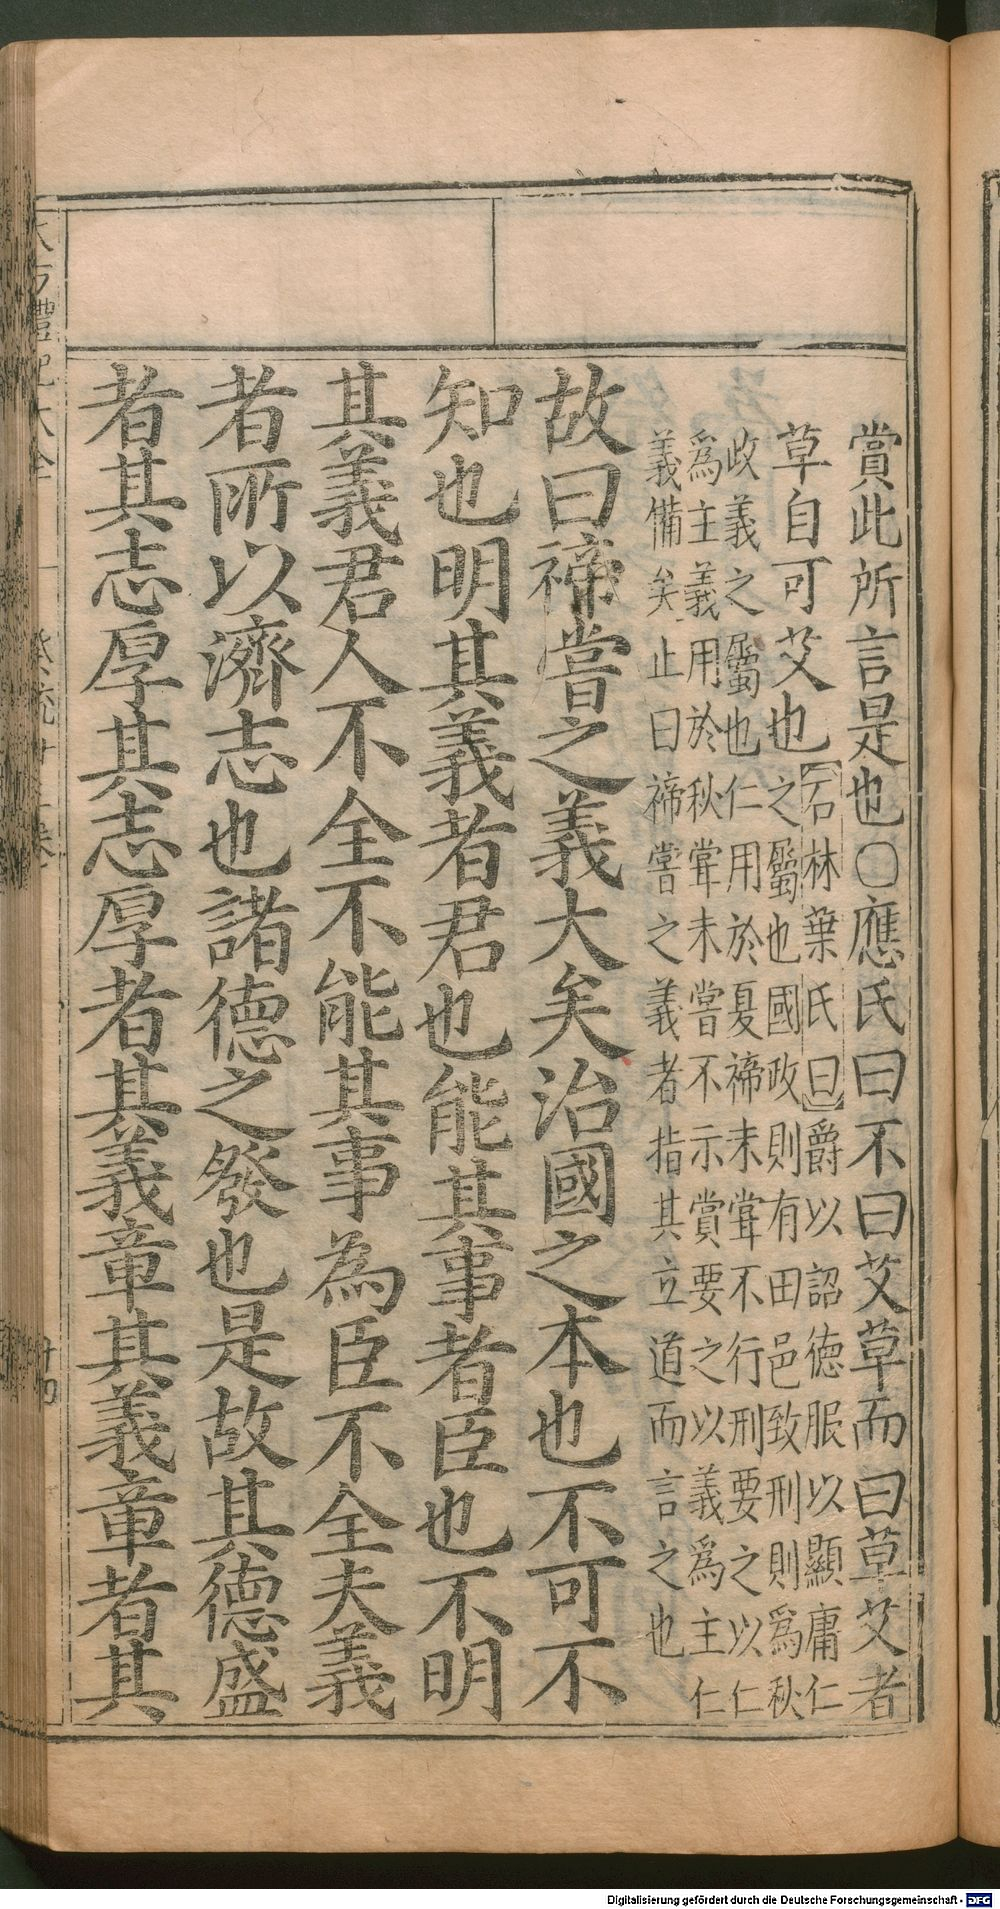 賞此所言是也○應氏曰不曰艾草而曰草艾者
草自可艾也
【石林葉氏曰】爵以詔德服以顯庸仁
之屬也國政則有田邑致刑則爲秋
政義之屬也仁用於夏禘未甞不行刑要之以仁
爲主義用於秋甞未嘗不示賞要之以義爲主仁
義備矣止曰禘嘗之義者指其立道而言之也
故曰禘嘗之義大矣治國之本也不可不
知也明其義者君也能其事者臣也不明
其義君人不全不能其事為臣不全夫義
者所以濟志也諸德之發也是故其德盛
者其志厚其志厚者其義章其義章者其
禮記大全
Digitalisierung gefördert durch die Deutsche Forschungsgemeinschaft - DFG